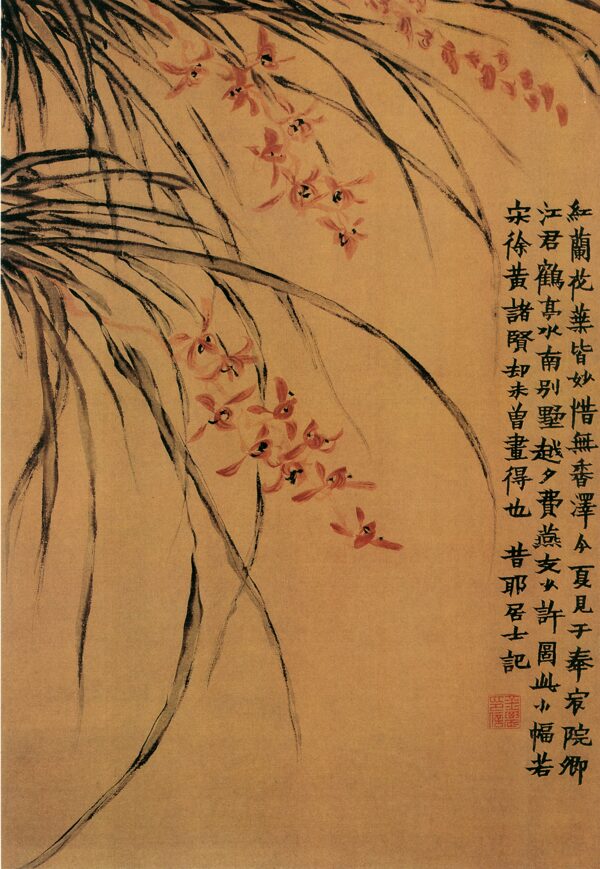 紅蘭花葉皆妙惜無香澤今夏見于奉宸院卿
江君鶴亭水南別墅越夕費燕支少許圖此小幅若
宋徐黃諸賢却未曾畫得也 昔耶居士記
金農印信